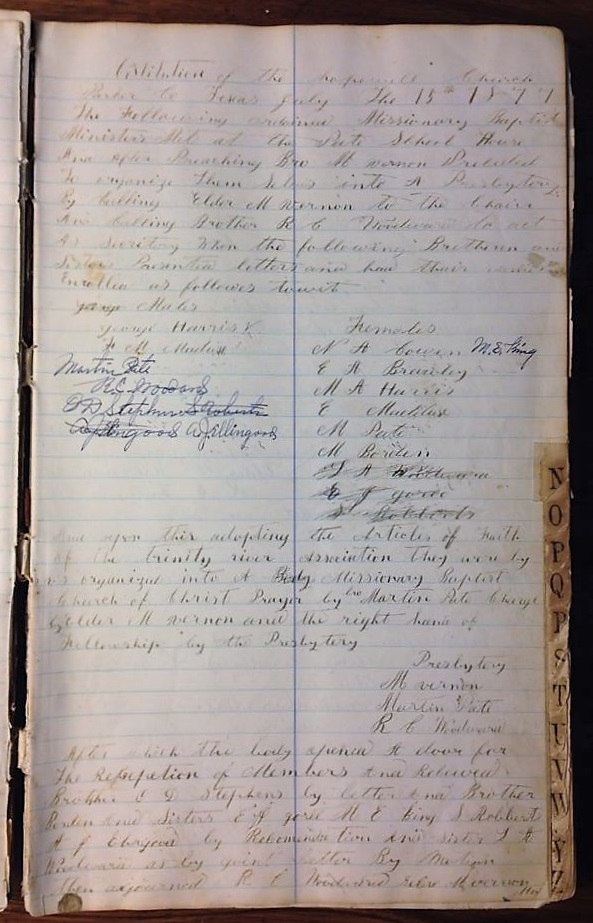 Constitution of the hopewell Church
Parker Co Texas July The 15th 1877
The Following ordained Missionary Baptist
Ministers Met at the Pate School House
And after Preaching Bro M vernon Proceded
To organize Them Selves into A Presbytery
By Calling Elder M vernon to the Chair
And Calling Brother R C Woodward to act
As Secretary When the following Brethren and
Sisters Presented letters and had their names
Enrolled as followes towit
Males
george Harris
F M Maddux
Martin Pate
R C Woodard
O D Stephens S Roberts
A J Ellingood
Females
N A Cowen M.E. King
E A Brawley
M A Harris
E Maddux
M Pate
M Borden
L A Woodward
E J gorde
S Robberts
And upon their adopting the Articles of Faith
of the trinity river Association they were by
us organized into A Body Missionary Baptist
Church of Christ Prayer by bro Martin Pate Charge
by Elder M vernon and the right hand of
Fellowship by the Presbytery
Presbytery
M vernon
Martin Pate
R C Woodward
After which the body opened A door for
The Reseption of Members And Received
Brother O D Stephens by letter And Brother
Borden And Sisters E J gorde M E King S Robbert
A J by and Sister L A
Woodward as by letter By Motion
then adjourned R C Woodward M vernon Mod
N
O
P
Q
R
S
T
U
V
W
Y
Z